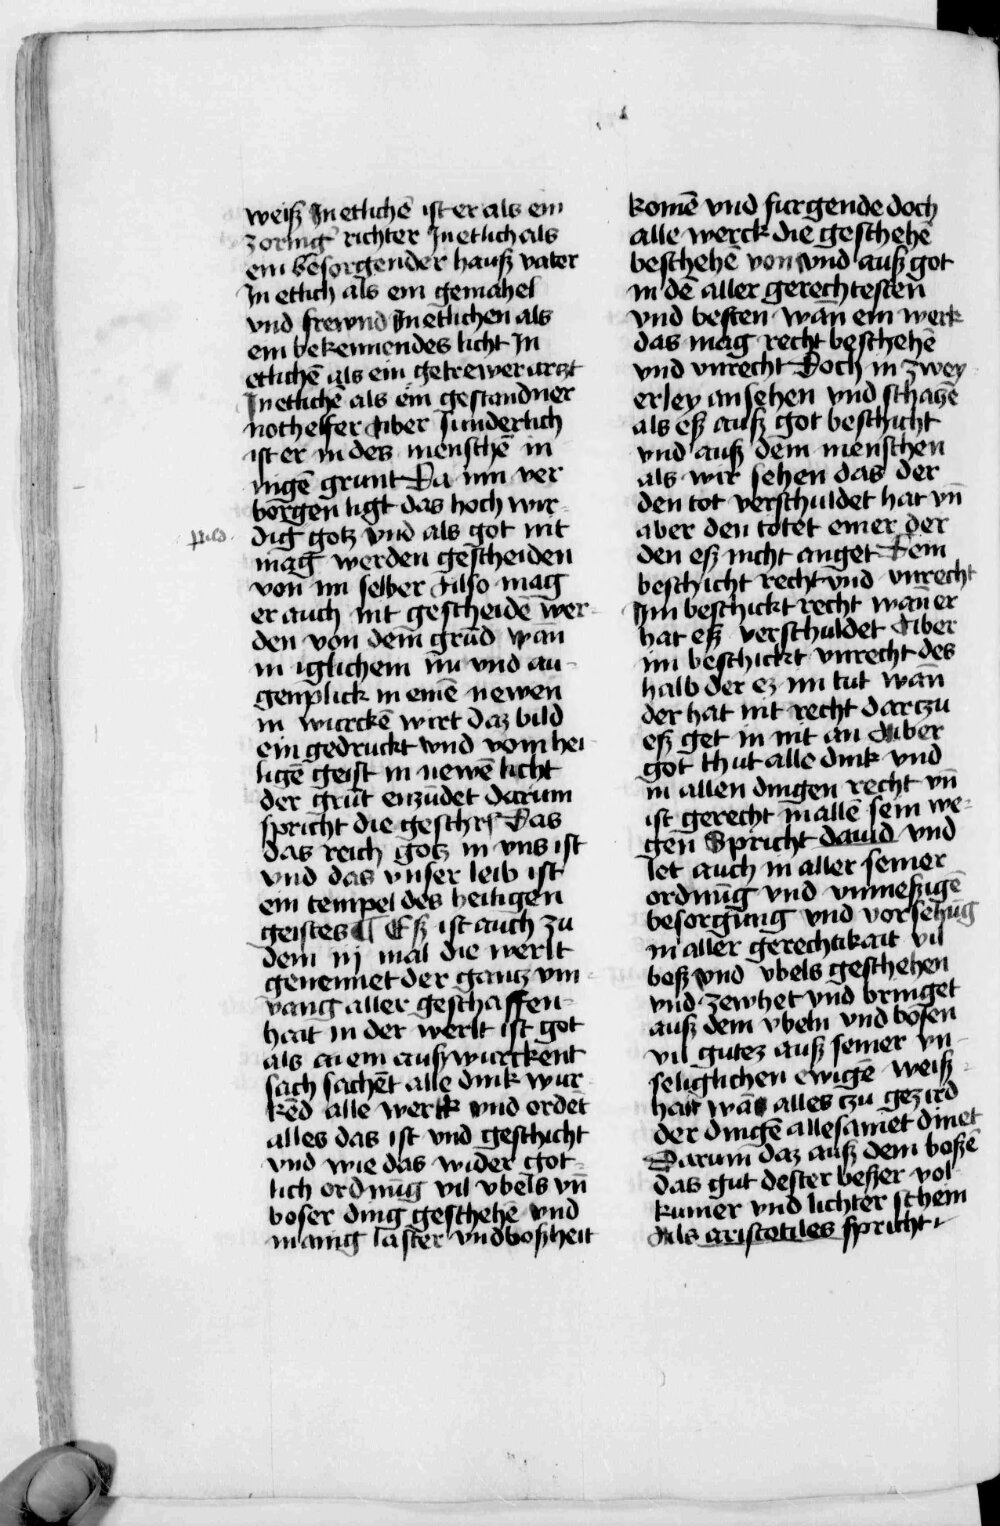 weiß In etlichē ist er als ein
zornig' richter In etlich als
ein besorgender hauß vater
In etlich als ein gemahel
vnd frewnd In etlichen als
ein bekennendes licht In
etlichē als ein getrewer arczt
In etlichē als ein gestandner
nothelfer Aber sunderlich
ist er in des menschē in
ingē grunt Da inn ver
borgen ligt das hoch wir-
pild
dig gotz vnd als got nit
mag werden gescheiden
von im selber Also mag
er auch nit gescheidē wer-
den von dem grūd wān
in iglichem nu vnd au-
genplick in einē newen
in wurckē wirt daz bild
ein gedruckt vnd vom hei
ligē geist in newē licht
der grūt enzūdet darum
spricht die geschr' Das
das reich gotz in vns ist
vnd das vnser leib ist
ein tempel des heiligen
geistes ¶ Eß ist auch zu
dem iij mal die werlt
genennet der gantz vm-
vang aller geschaffen-
hait in der werlt ist got
als ein außwurckent
sach sachēt alle dink wur
kēd alle werck vnd ordēt
alles das ist vnd geschicht
vnd wie das wider got-
lich ordnūg vil vbels vn̄
boser ding geschehē vnd
manig laster vnd boßheit
komē vnd furgende doch
alle werck die geschehē
beschehē von vnd auß got
in dē aller gerechtesten
vnd besten wān ein werk
das mag recht beschehē
vnd vnrecht Doch in zwey
erley ansehen vnd schaczē
als eß auß got beschicht
vnd auß dem menschen
als wir sehen das der
den tot verschuldet hat vn̄
aber den tötet einer der
den eß nicht anget Dem
beschicht recht vnd vnrecht
Im beschickt recht wān er
hat eß verschuldet Aber
im beschickt vnrecht des
halb der ez im tut wān
der hat nit recht darczu
eß get in nit an Aber
got thut alle dink vnd
in allen dingen recht vn̄
ist gerecht in allē sein we-
gen Spricht dauid vnd
let auch in aller seiner
ordnūg vnd vnmeßigē
besorgung vnd vorsehūg
in aller gerechtikait vil
beß vnd vbels geschehen
vnd zewhet vnd bringet
auß dem vbeln vnd bosen
vil gutez auß seiner vn-
seliglichen ewigē weiß-
hait wān alles czu gezird
der dingē allesamēt dinet
Darum daz auß dem boßē
das gut dester beßer vol-
kumer vnd lichter schein
Als aristotiles spricht